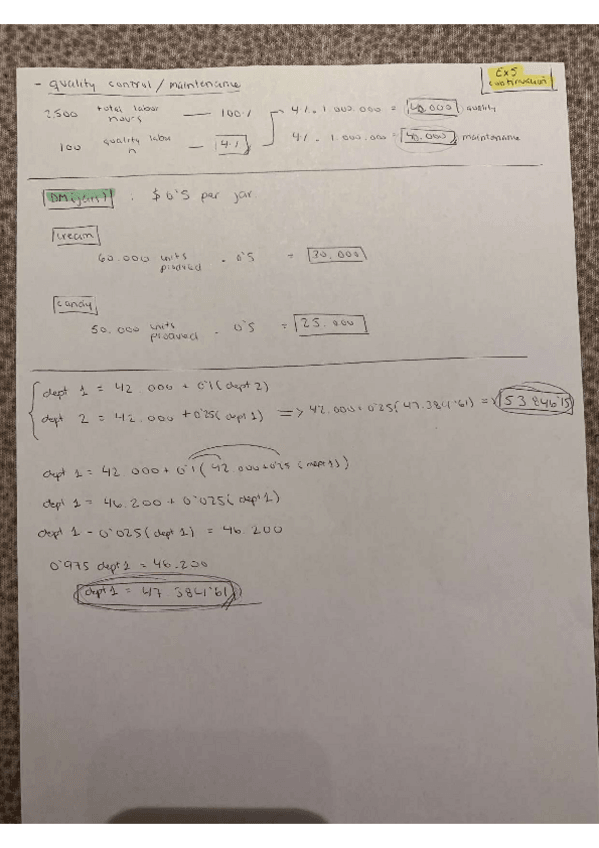 - quality control / maintenance
EX5 continuación
2.500 total labor hours — 100%
4% · 1.000.000 = 40.000 quality
100 quality labor h — 4%
4% · 1.000.000 = 40.000 maintenance
DM (jars) · $ 0'5 per jar
cream
60.000 units produced · 0'5 = 30.000
candy
50.000 units produced · 0'5 = 25.000
dept 1 = 42.000 + 0'1(dept 2)
dept 2 = 42.000 + 0'25(dept 1) => 42.000 + 0'25(47.384'61) => 53.846'15
dept 1 = 42.000 + 0'1(42.000 + 0'25(dept 1))
dept 1 = 46.200 + 0'025(dept 1)
dept 1 - 0'025(dept 1) = 46.200
0'975 dept 1 = 46.200
dept 1 = 47.384'61